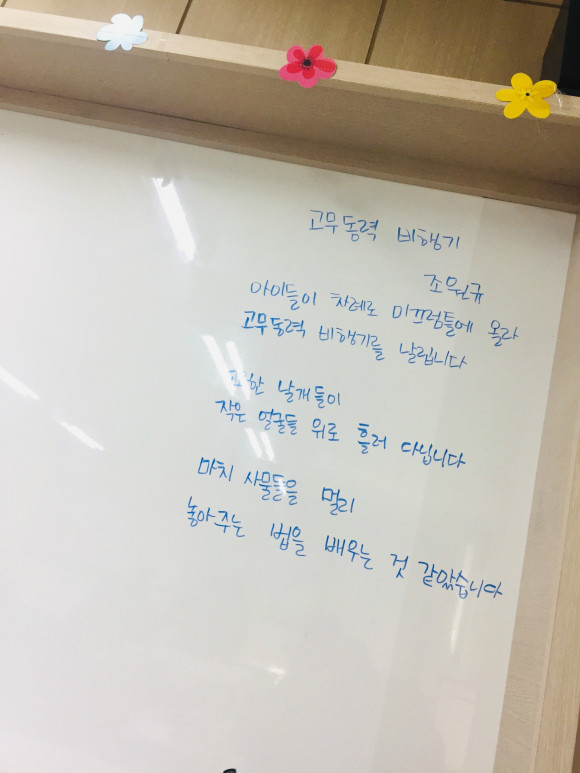 고무동력 비행기
조원규
아이들이 차례로 미끄럼틀에 올라
고무동력 비행기를 날립니다
날개들이
작은 얼굴들 위로 흘러 다닙니다
마치 사물들을 멀리
놓아주는 법을 배우는 것 같았습니다